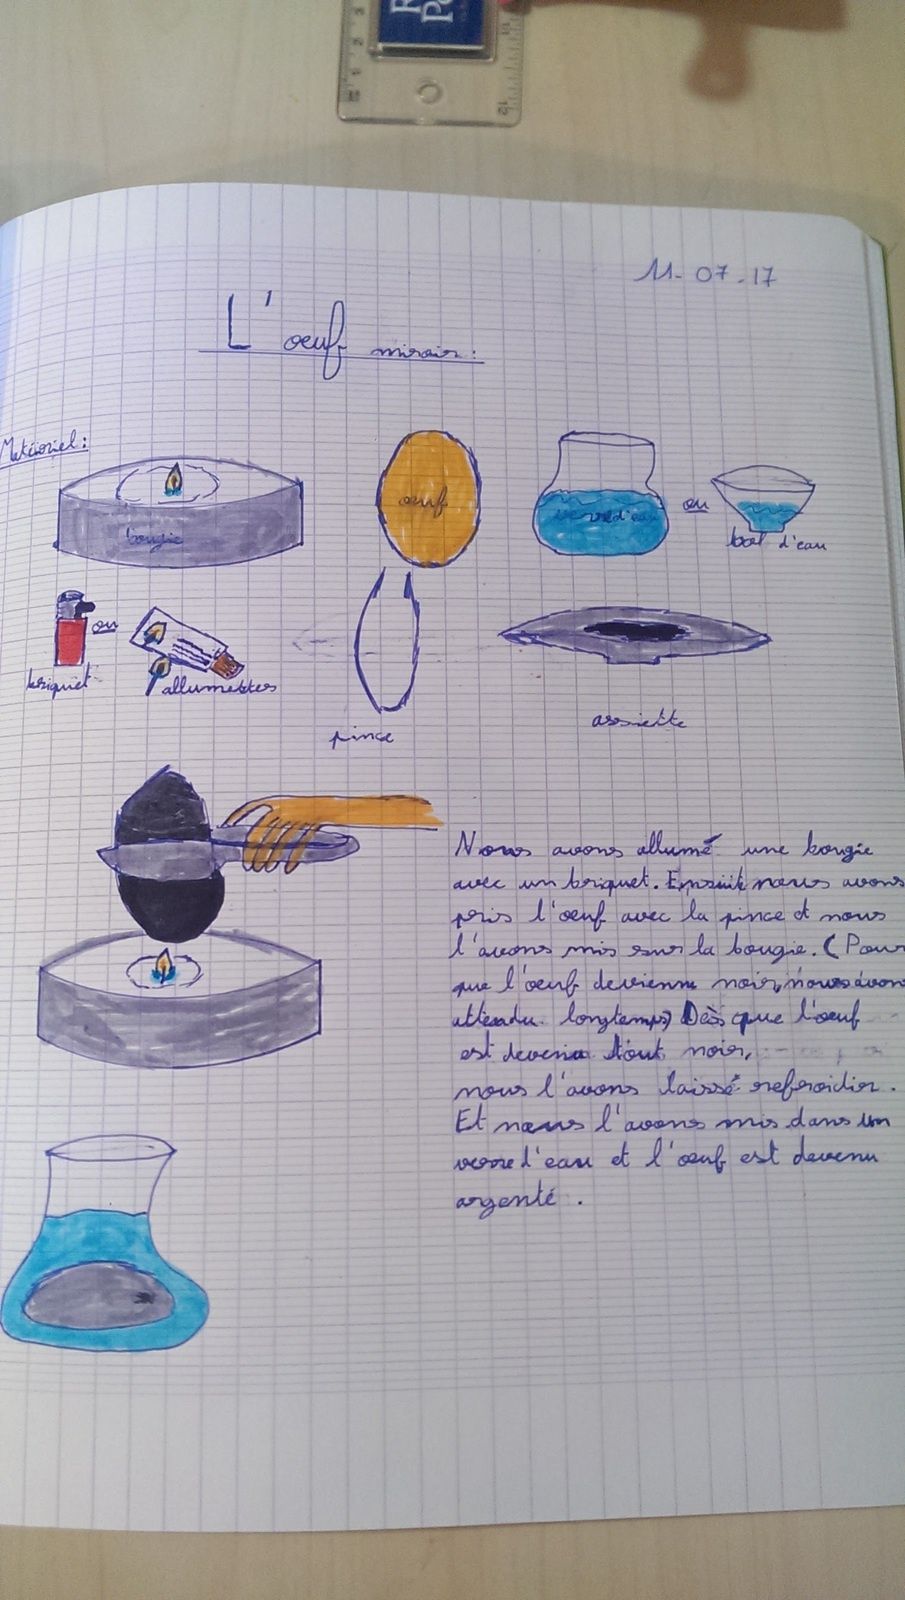 11-07-17
L'oeuf miroir :
Matériel :
bougie
oeuf
verre d'eau
ou
bol d'eau
briquet
ou
allumettes
pince
assiette
Nous avons allumé une bougie
avec un briquet. Ensuite nous avons
pris l'oeuf avec la pince et nous
l'avons mis sur la bougie. (Pour
que l'oeuf devienne noir, nous avons
attendu longtemps) Dès que l'oeuf
est devenu tout noir,
nous l'avons laissé refroidir.
Et nous l'avons mis dans un
verre d'eau et l'oeuf est devenu
argenté.